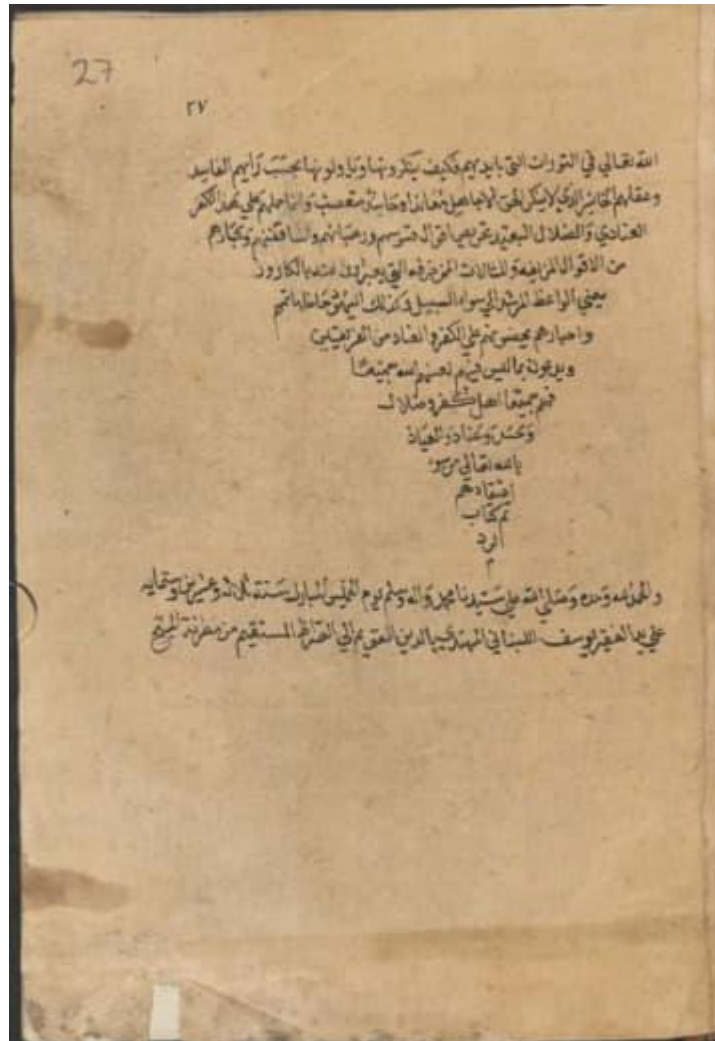 27
٢٧
الله تعالي في التورات التي بايديهم فكيف ينكرونها وياولونها بحسب رايهم الفاسد
وعقلهم الذي لاينكر الحق الا جاهل معاند او حاسد متعصب وانما حملهم علي هذا الكفر
العنادي والضلال البعيد ورهبانهم واساقفتهم وكبارهم
من الاقوال المزيفه التي عنه بالكاروز
يعني الواعظ المرشد الي سواء السبيل وكذلك اليهود
واحبارهم علي الكفر والعناد من الفريقين
ويدعون بما ليس فيهم لعنهم الله جميعا
فهم جميعا اهل كفر وضلال
وحسد وعناد والعياذ
بالله تعالي من سو
اعتقادهم
تم كتاب
الرد
م
والحمد لله وحده وصلي الله علي سيدنا محمد واله وسلم يوم الخميس المبارك سنة وعشرين وستمايه
علي يد الفقير يوسف اللبناني المهتدي بالدين القويم الي الصراط المستقيم من